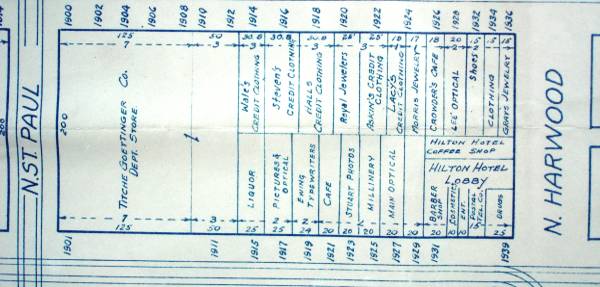 1900
1902
1904
1906
1908
1910
1912
1914
1916
1918
1920
1922
1924
1926
1928
1932
1934
1936
N. ST. PAUL
N. HARWOOD
200
125
50
25'
25'
18
17
18
20
15
15
15
7
3
3
3
3
TITCHE GOETTINGER CO.
DEPT. STORE
WALE'S
CREDIT CLOTHING
STEVEN'S
CREDIT CLOTHING
CREDIT CLOTHING
ROYAL JEWELERS
ASKIN'S CREDIT
CLOTHING
LACY'S
CREDIT CLOTHING
MORRIS JEWELRY
CROWDER'S CAFE
LEE OPTICAL
SHOES
CLOTHING
GRAYS JEWELRY
HILTON HOTEL
COFFEE SHOP
HILTON HOTEL
LOBBY
LIQUOR
PICTURES &
OPTICAL
EWING
TYPEWRITERS
CAFE
STUART PHOTOS
MILLINERY
MAIN OPTICAL
BARBER
SHOP
COSMETICS
ENT.
POSTAL
TEL. CO.
DRUGS
7
3
2
2
125
50
25
25
24
20
20
25
20
20
20
10
10
15
25
1901
1911
1915
1917
1919
1921
1923
1925
1927
1929
1931
1939